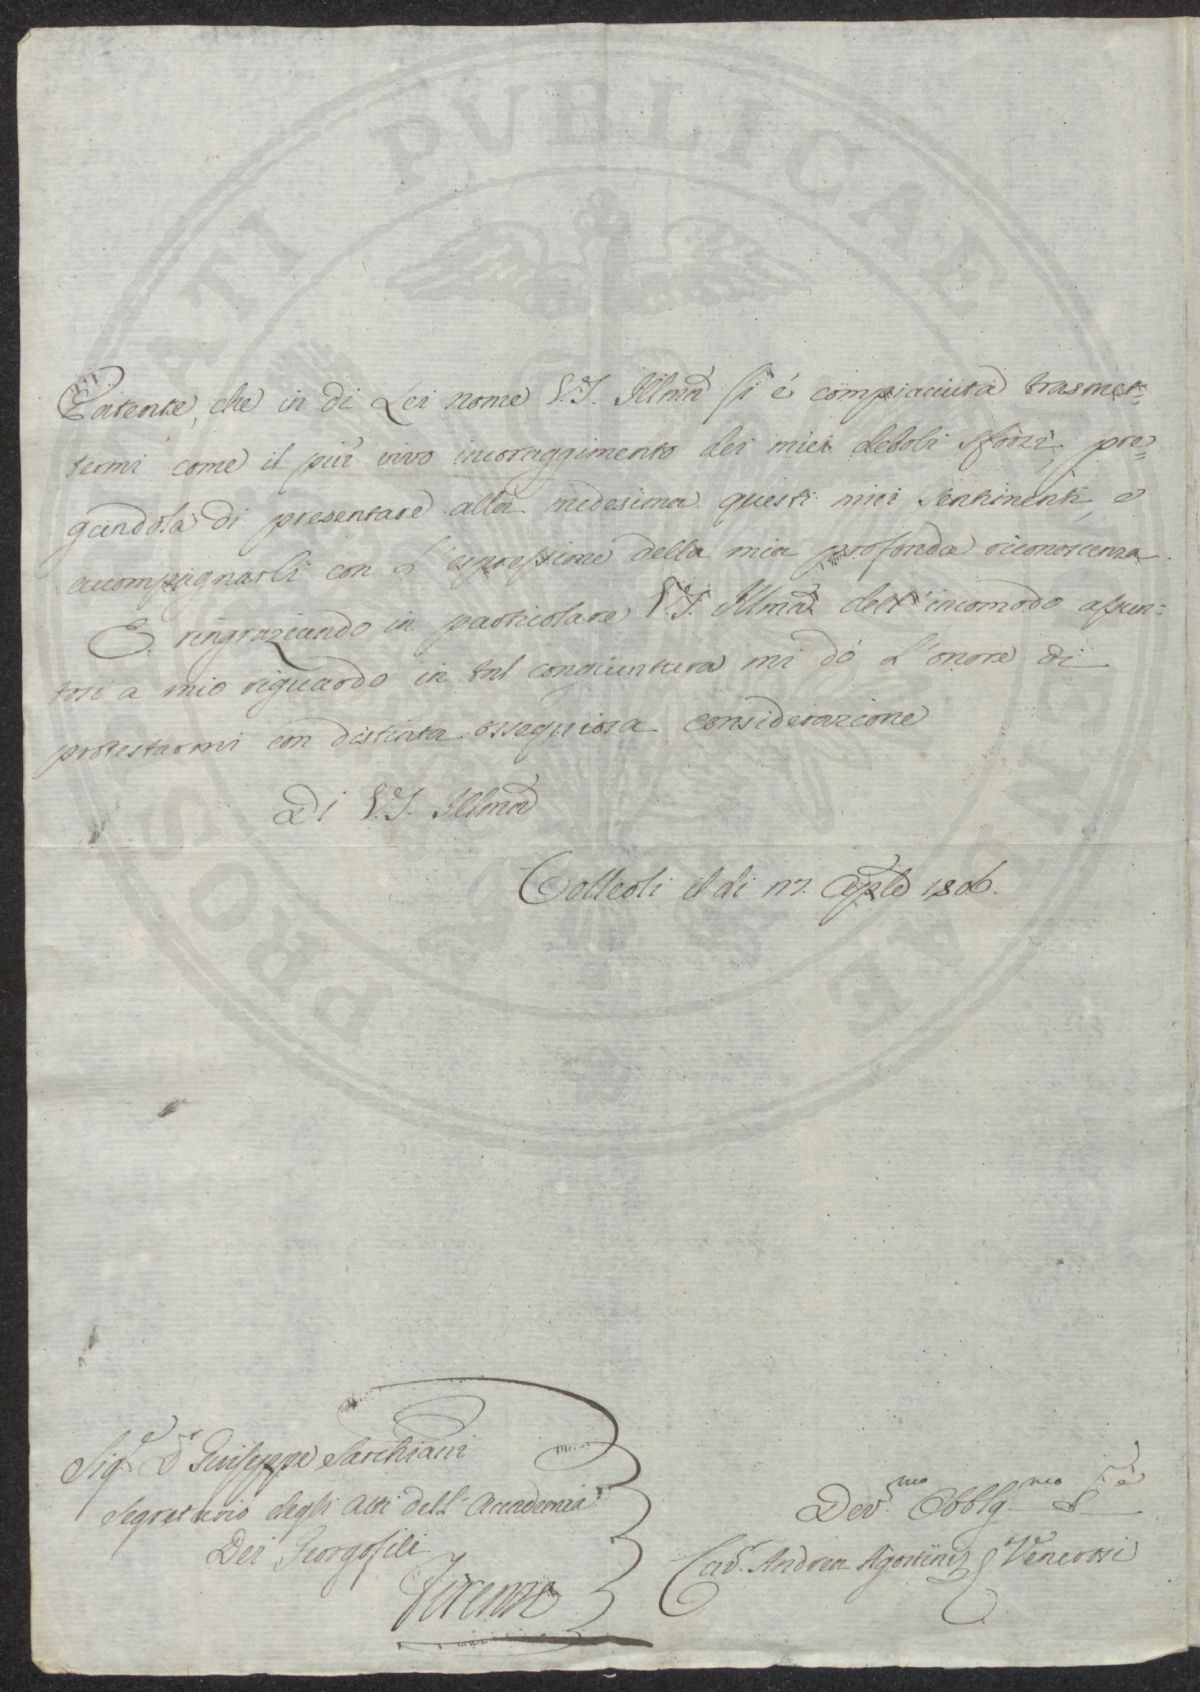 Patente, che in di Lei nome V.S. Illma si è compiaciuta trasmet=
termi come il più vivo incoraggimento dei miei deboli sforzi, pre=
gandola di presentare alla medesima questi miei sentimenti, e
accompagnarli con L'espressione della mia profonda riconoscenza.
E ringraziando in particolare V.S. Illma dell'incomodo assun=
tosi a mio riguardo in tal congiuntura mi dò L'onore di
protestarmi con distinta ossequiosa considerazione
Di V.S. Illma
Colleoli il di 17. Aple 1806.
Sigre Dr Giuseppe Sarchiani
Segretario degli Atti dell'Accademia
Dei Georgofili
Firenze
Devmo Obblgmo
Cav. Andrea Agostini Venerosi
PROSPERITATI PUBLICAE AUGENDAE